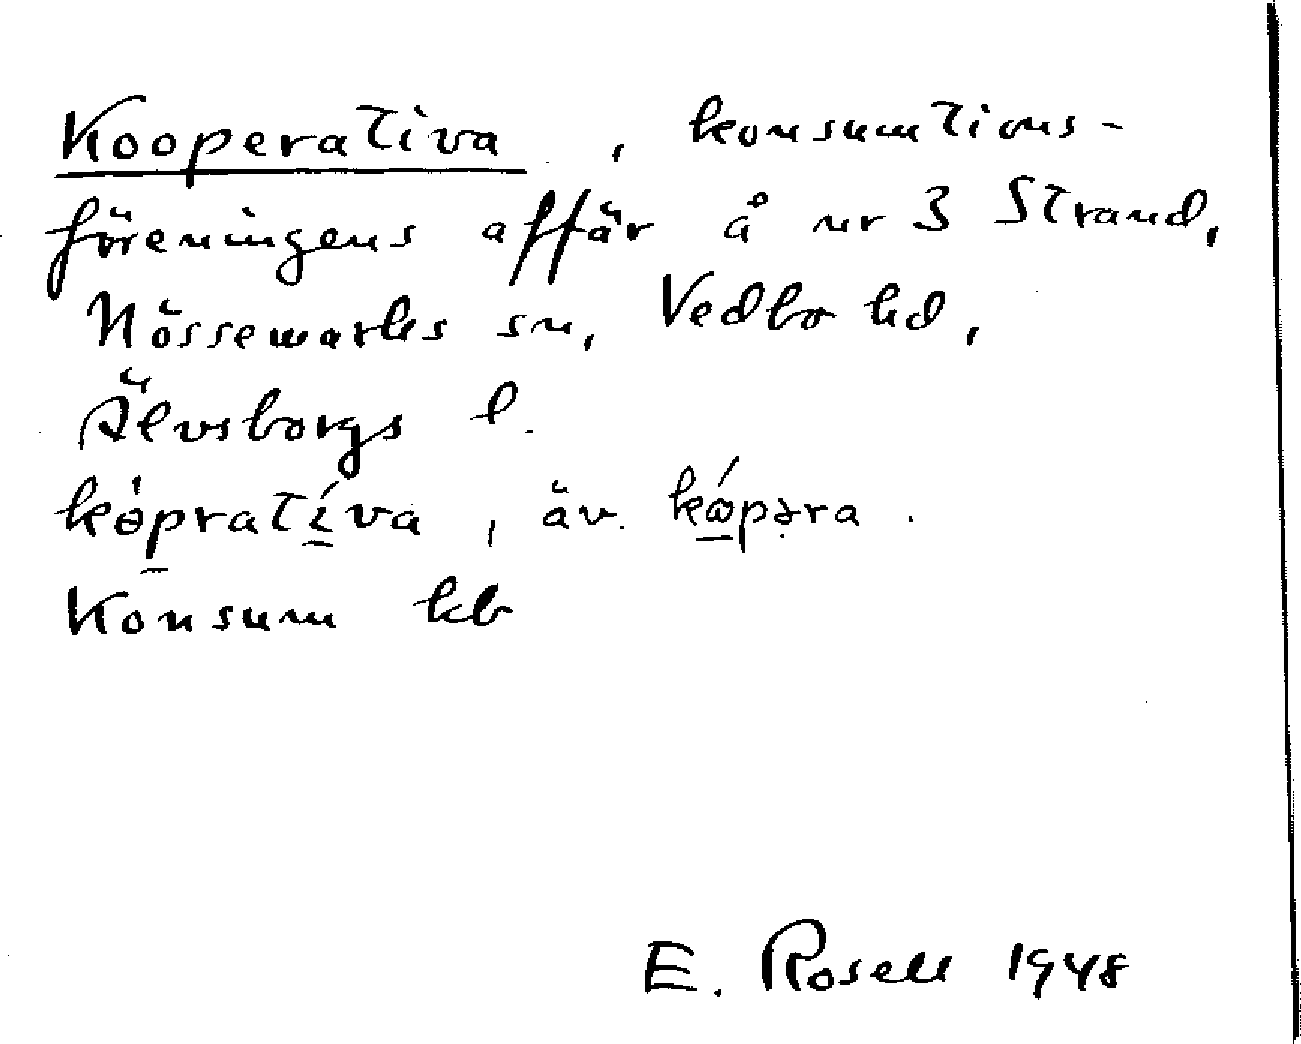 Kooperativa, konsumtions-
föreningens affär å nr 3 Strand,
Nössemarks sn, Vedbo hd,
Älvsborgs l.
köpratíva, äv. kǿpəra.
Konsum kb
E. Rosell 1948